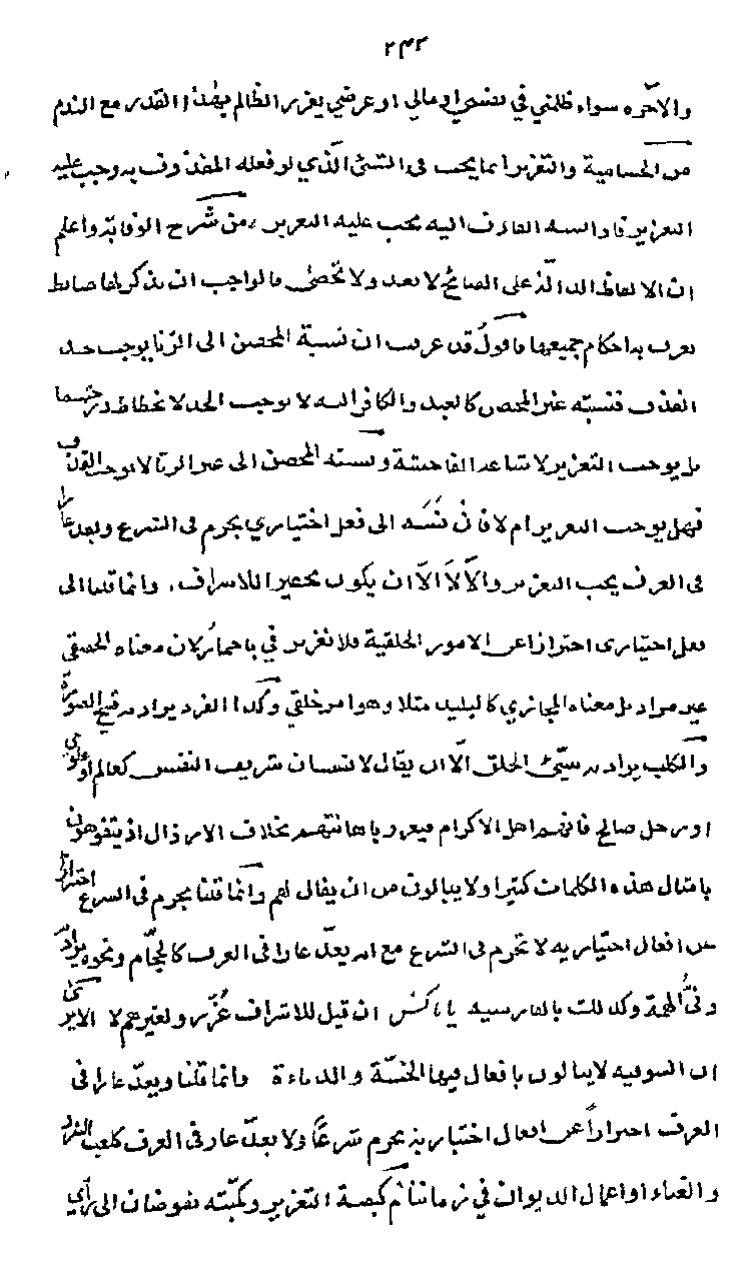 ٢٤٢
والآخره سواء ظلمني في نفسي او مالي او عرضي يعزر الظالم بهذا القدر مع الندم
من الحسامية والتعزير انما يجب فى الشئ الذي لو فعله المقذوف به وجب عليه
التعزير فاذا نسبه القاذف اليه يجب عليه التعزير من شرح الوقاية واعلم
ان الالفاظ الدالة على الصائح لا تعد ولا تحصى فالواجب ان يذكر لها ضابط
يعرف به احكام جميعها فاقول قد عرفت ان نسبة المحصن الى الزنا يوجب حد
القذف فنسبته غير المحصن كالعبد والكافر اليه لا يوجب الحد لانحطاط درجتهما
بل يوجب التعزير لاشاعة الفاحشة ونسبته المحصن الى غير الزنا لا يوجب القذف
فهل يوجب التعزير ام لا فان نسبه الى فعل اختياري يحرم فى الشرع ويعد عارا
فى العرف يجب التعزير والا لا الا ان يكون تحقيرا للاشراف. وانما قلنا الى
فعل اختيارى احترازا عن الامور الخلقية فلا تعزير في يا حمار لان معناه الحقيقي
غير مراد بل معناه المجازي كالبليد مثلا وهو امر خلقي وكذا القرد يراد به قبيح الصورة
والكلب يراد به سيّئ الخلق الّا ان يقال لانسان شريف النفس كعالم او علوي
او رجل صالح فانهم اهل الاكرام فيعزر باهانتهم بخلاف الارذال اذ يتفوهون
بامثال هذه الكلمات كثيرا ولا يبالون من ان يقال لهم وانما قلنا يحرم فى الشرع احترازا
عن افعال اختياريه لا تحرم فى الشرع مع انه يعدّ عارا فى العرف كالحجّام ونحوه يراد
دنئ الهمة وكذلك بالفارسيه يا ناكس ان قيل للاشراف عُزّر ولغيرهم لا الا يرى
ان السوقيه لا يبالون بافعال فيها الخسّة والدناءة وانما قلنا ويعدّ عارا فى
العرف احترازاً عن افعال اختياريه تحرم شرعاً ولا يعدّ عار فى العرف كلعب النرد
والغناء او اعمال الديوان في زماننا ثم كيفية التعزير وكميّته تفوضان الى رأي